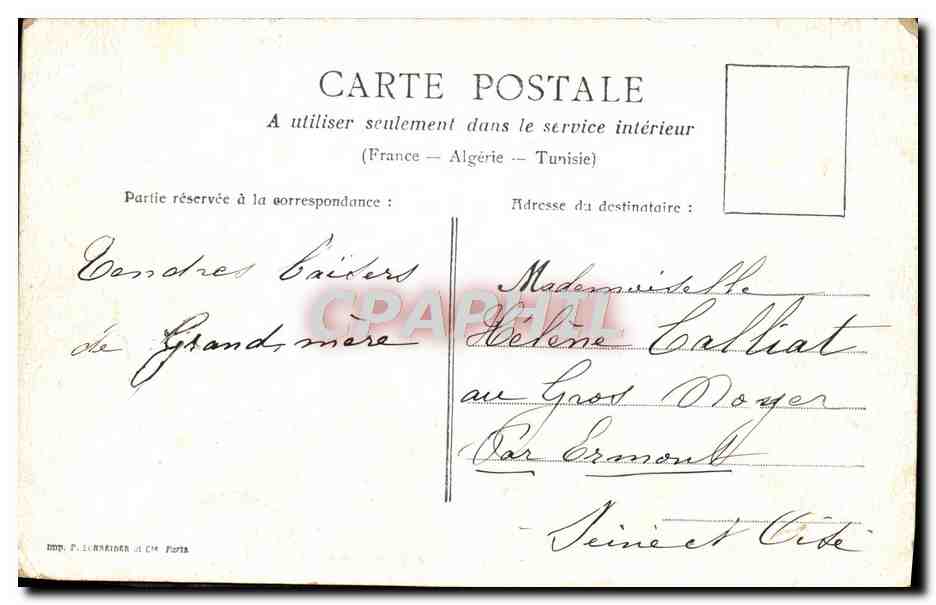 CARTE POSTALE
A utiliser seulement dans le service intérieur
(France — Algérie — Tunisie)
Partie réservée à la correspondance :
Adresse du destinataire :
Tendres baisers
de Grand, mère
Mademoiselle
Hélène Calliat
au Gros Noyer
Par Ermont
Seine et Oise
CPAPHIL
Imp. F. SCHNEIDER et Cie Paris